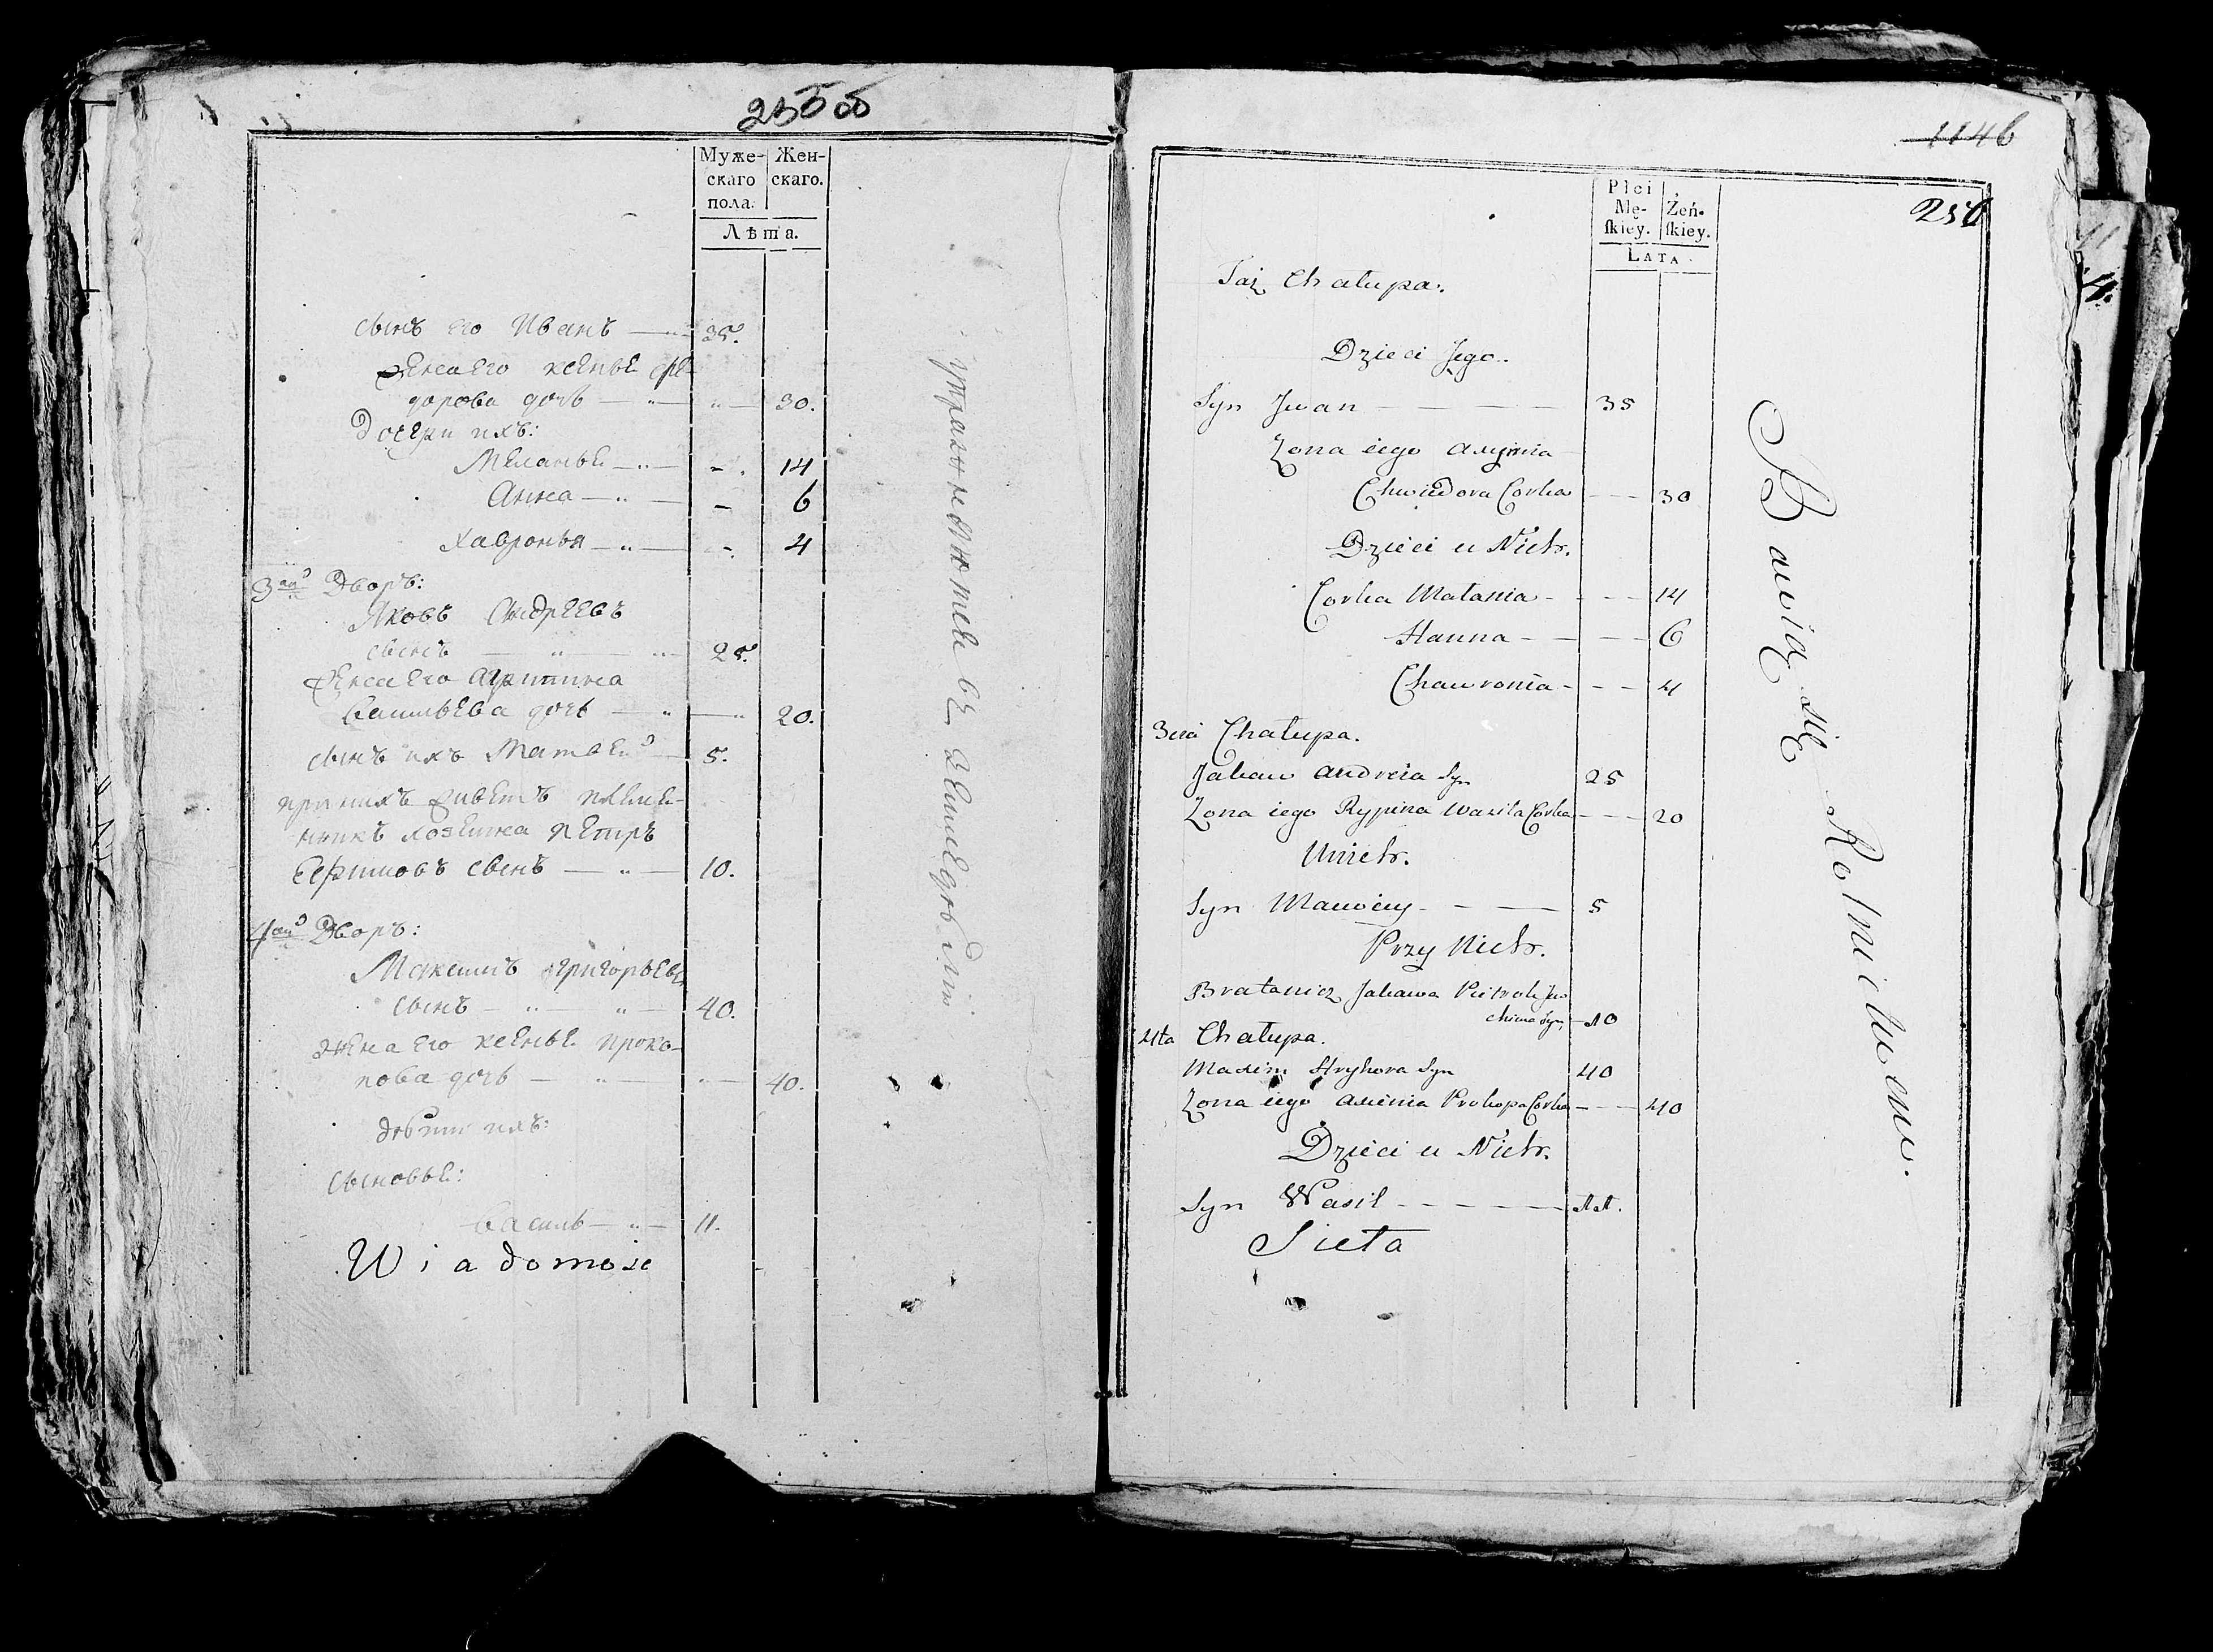 255 об
Муже-
скаго
пола.
Жен-
скаго.
Лѣта.
сынъ его Иванъ — 35.
жена его ксенья фе
дорова дочь — — 30.
Дочери ихъ:
Меланья — - 14
Анна — - 6
Хавронья — - 4
3ий Дворъ:
Яковъ Андреевъ
сынъ — 25.
жена его Агрипина
Васильева дочь — — 20.
сынъ ихъ Матвей — 5.
при нихъ живетъ племе-
никъ хозяина Петръ
Ефимовъ сынъ — 10.
4ый Дворъ:
Максимъ Григорьевъ
сынъ — 40.
жена его ксенья Проко-
пова дочь — — 40.
дѣти ихъ:
сыновья:
Василь — 11.
Wiadomość
упражняются въ земледѣлии
1146
256
Płci
Mę-
ſkiey.
Żeń-
ſkiey.
LATA
Taż Chałupa.
Dzieci Jego.
Syn Jwan — — — — 35
Zona iego Axynia
Chwiedora Corka — — 30
Dzieci u Nich.
Corka Małania - — — 14
Hanna - — — 6
Chawronia - - — 4
3cia Chałupa.
Jakaw Andreia Syn 25
Zona iego Rypina Wasila Corka — — 20
U nich.
Syn Mawiey - — — 5
Przy Nich.
Bratanicz Jakawa Pietrok Jw
chima Syn, — 10
4ta Chałupa.
Maxim Hryhora Syn 40
Zona iego Axienia Prokopa Corka — — 40
Dzieci u Nich.
Syn Wasil - - — — — 11.
Sieła
Bawią się Rolnictwem.